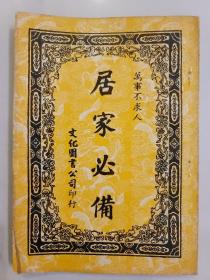 萬事不求人
居家必備
文化圖書公司印行